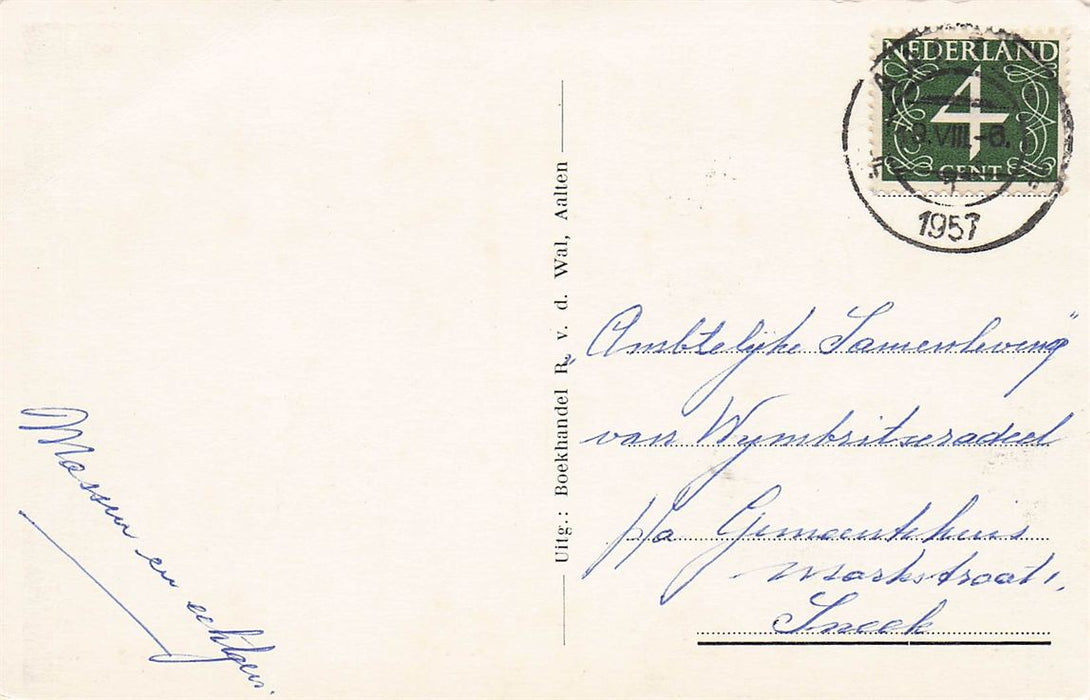 NEDERLAND
4
CENT
9.VIII.-6.
1957
Uitg.: Boekhandel R. v. d. Wal, Aalten
"Ambtelijke Samenleving"
van Wymbritseradeel
p/a Gemeentehuis
Markstraat,
Sneek
Massen en echtgen.